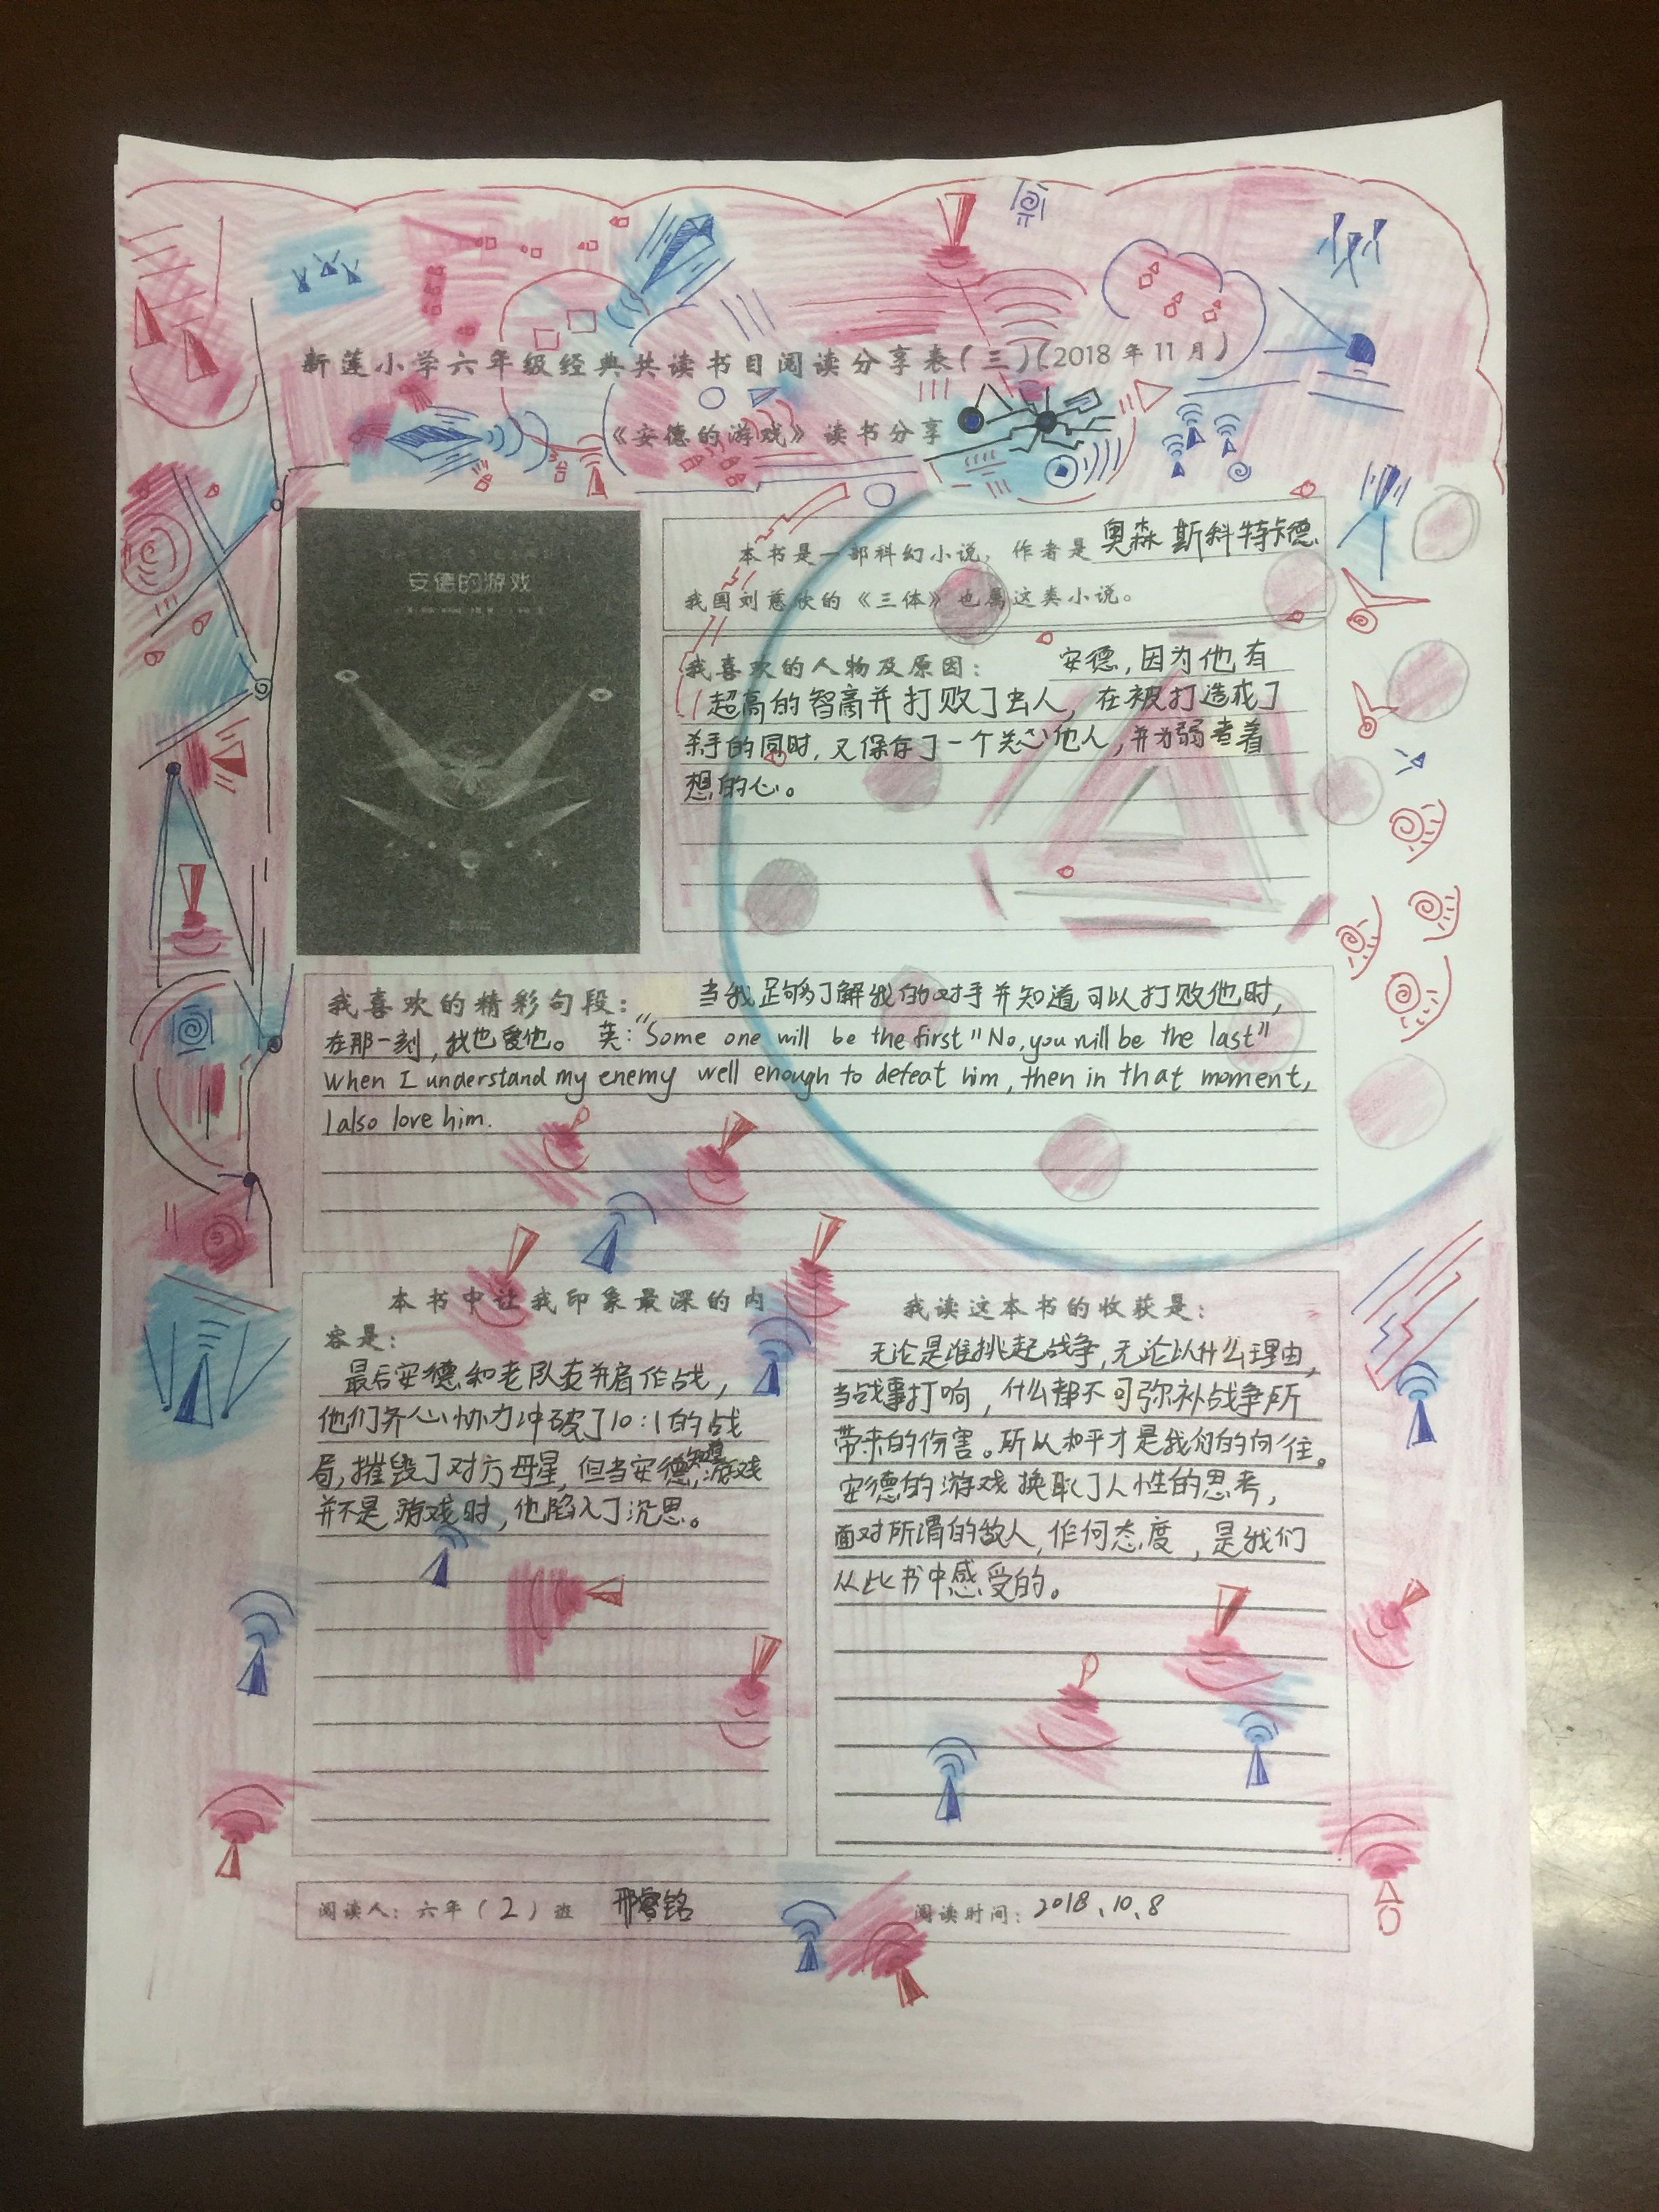 新莲小学六年级经典共读书目阅读分享表(三)(2018年11月)
《安德的游戏》读书分享
安德的游戏
本书是一部科幻小说,作者是奥森斯科特卡德
我国刘慈欣的《三体》也属这类小说。
我喜欢的人物及原因: 安德,因为他有
超高的智商并打败了虫人,在被打造成了
杀手的同时,又保存了一个关心他人,并为弱者着
想的心。
我喜欢的精彩句段: 当我足够了解我的对手并知道可以打败他时,
在那一刻,我也爱他。 英:"Some one will be the first" "No, you will be the last"
When I understand my enemy well enough to defeat him, then in that moment,
I also love him.
本书中让我印象最深的内
容是:
最后安德和老队友并肩作战,
他们齐心协力冲破了10:1的战
局,摧毁了对方母星,但当安德知道游戏
并不是游戏时,他陷入了沉思。
我读这本书的收获是:
无论是谁挑起战争,无论以什么理由,
当战事打响,什么都不可弥补战争所
带来的伤害。所以和平才是我们的向往。
安德的游戏换取了人性的思考,
面对所谓的敌人,作何态度,是我们
从此书中感受的。
阅读人:六年(2)班 邢睿铭 阅读时间:2018、10、8